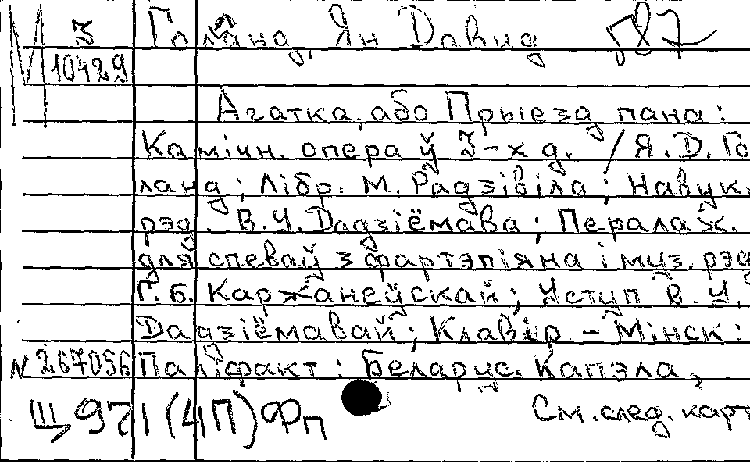 М З Голанд, Ян Давид
10429
Агатка, або Прыезд пана:
Камічн. опера ў 3-х д. / Я. Д. Го
ланд; Лібр. М. Радзівіла; Навук.
рэд. В. У. Дадзіёмава; Пералаж.
для спеваў з фартэпіяна і муз. рэд
Г. Б. Каржанеўскай; Уступ В. У.
Дадзіёмавай; Клавір. – Мінск:
N 267056 Паліфакт: Беларус. Капэла,
Щ 971 (4П) Фп См. след. карт